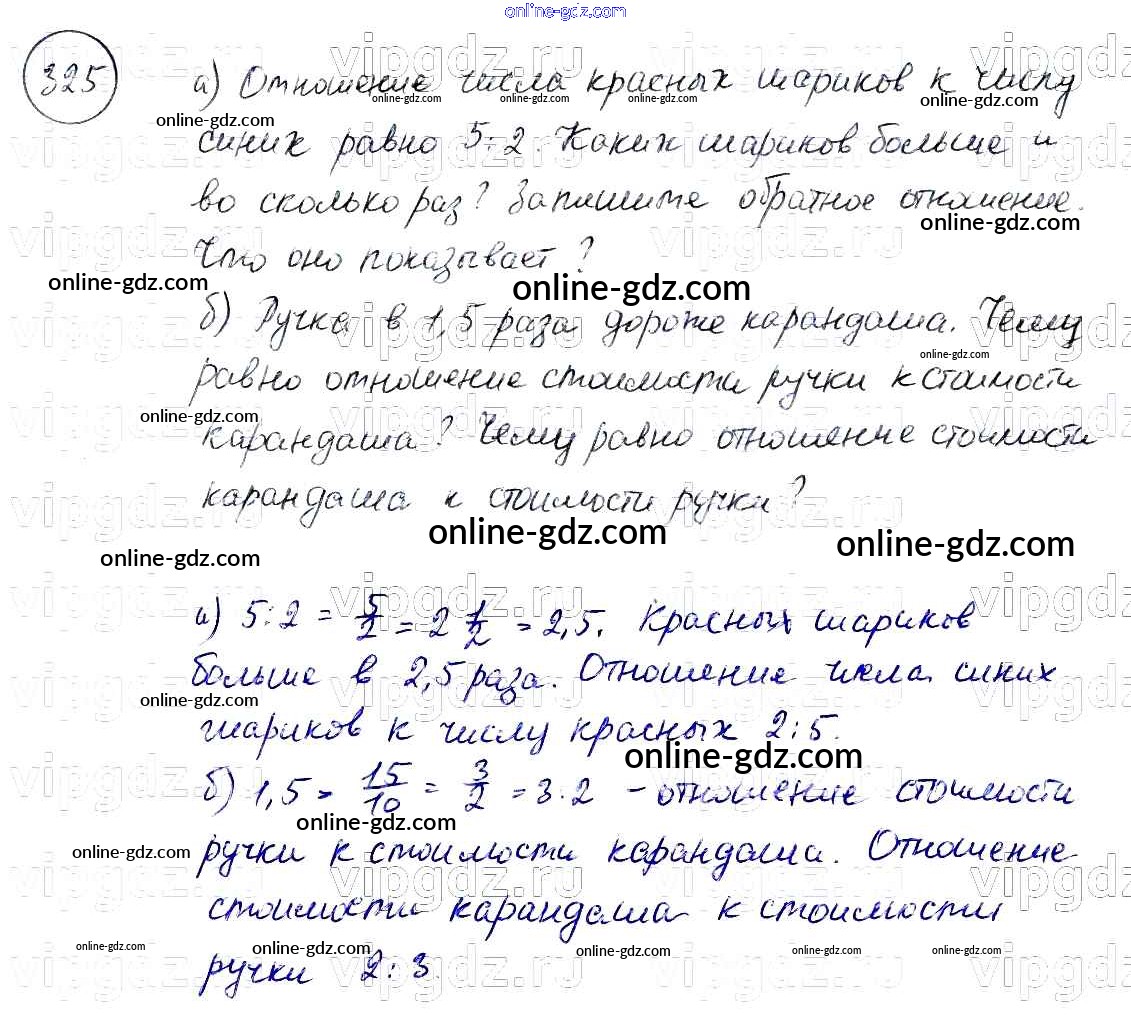 online-gdz.com
325
а) Отношение числа красных шариков к числу
синих равно 5:2. Каких шариков больше и
во сколько раз? Запишите обратное отношение.
Что оно показывает?
б) Ручка в 1,5 раза дороже карандаша. Чему
равно отношение стоимости ручки к стоимости
карандаша? Чему равно отношение стоимости
карандаша к стоимости ручки?
а) 5:2 = 5/2 = 2 1/2 = 2,5. Красных шариков
больше в 2,5 раза. Отношение числа синих
шариков к числу красных 2:5.
б) 1,5 = 15/10 = 3/2 = 3:2 – отношение стоимости
ручки к стоимости карандаша. Отношение
стоимости карандаша к стоимости
ручки 2:3.